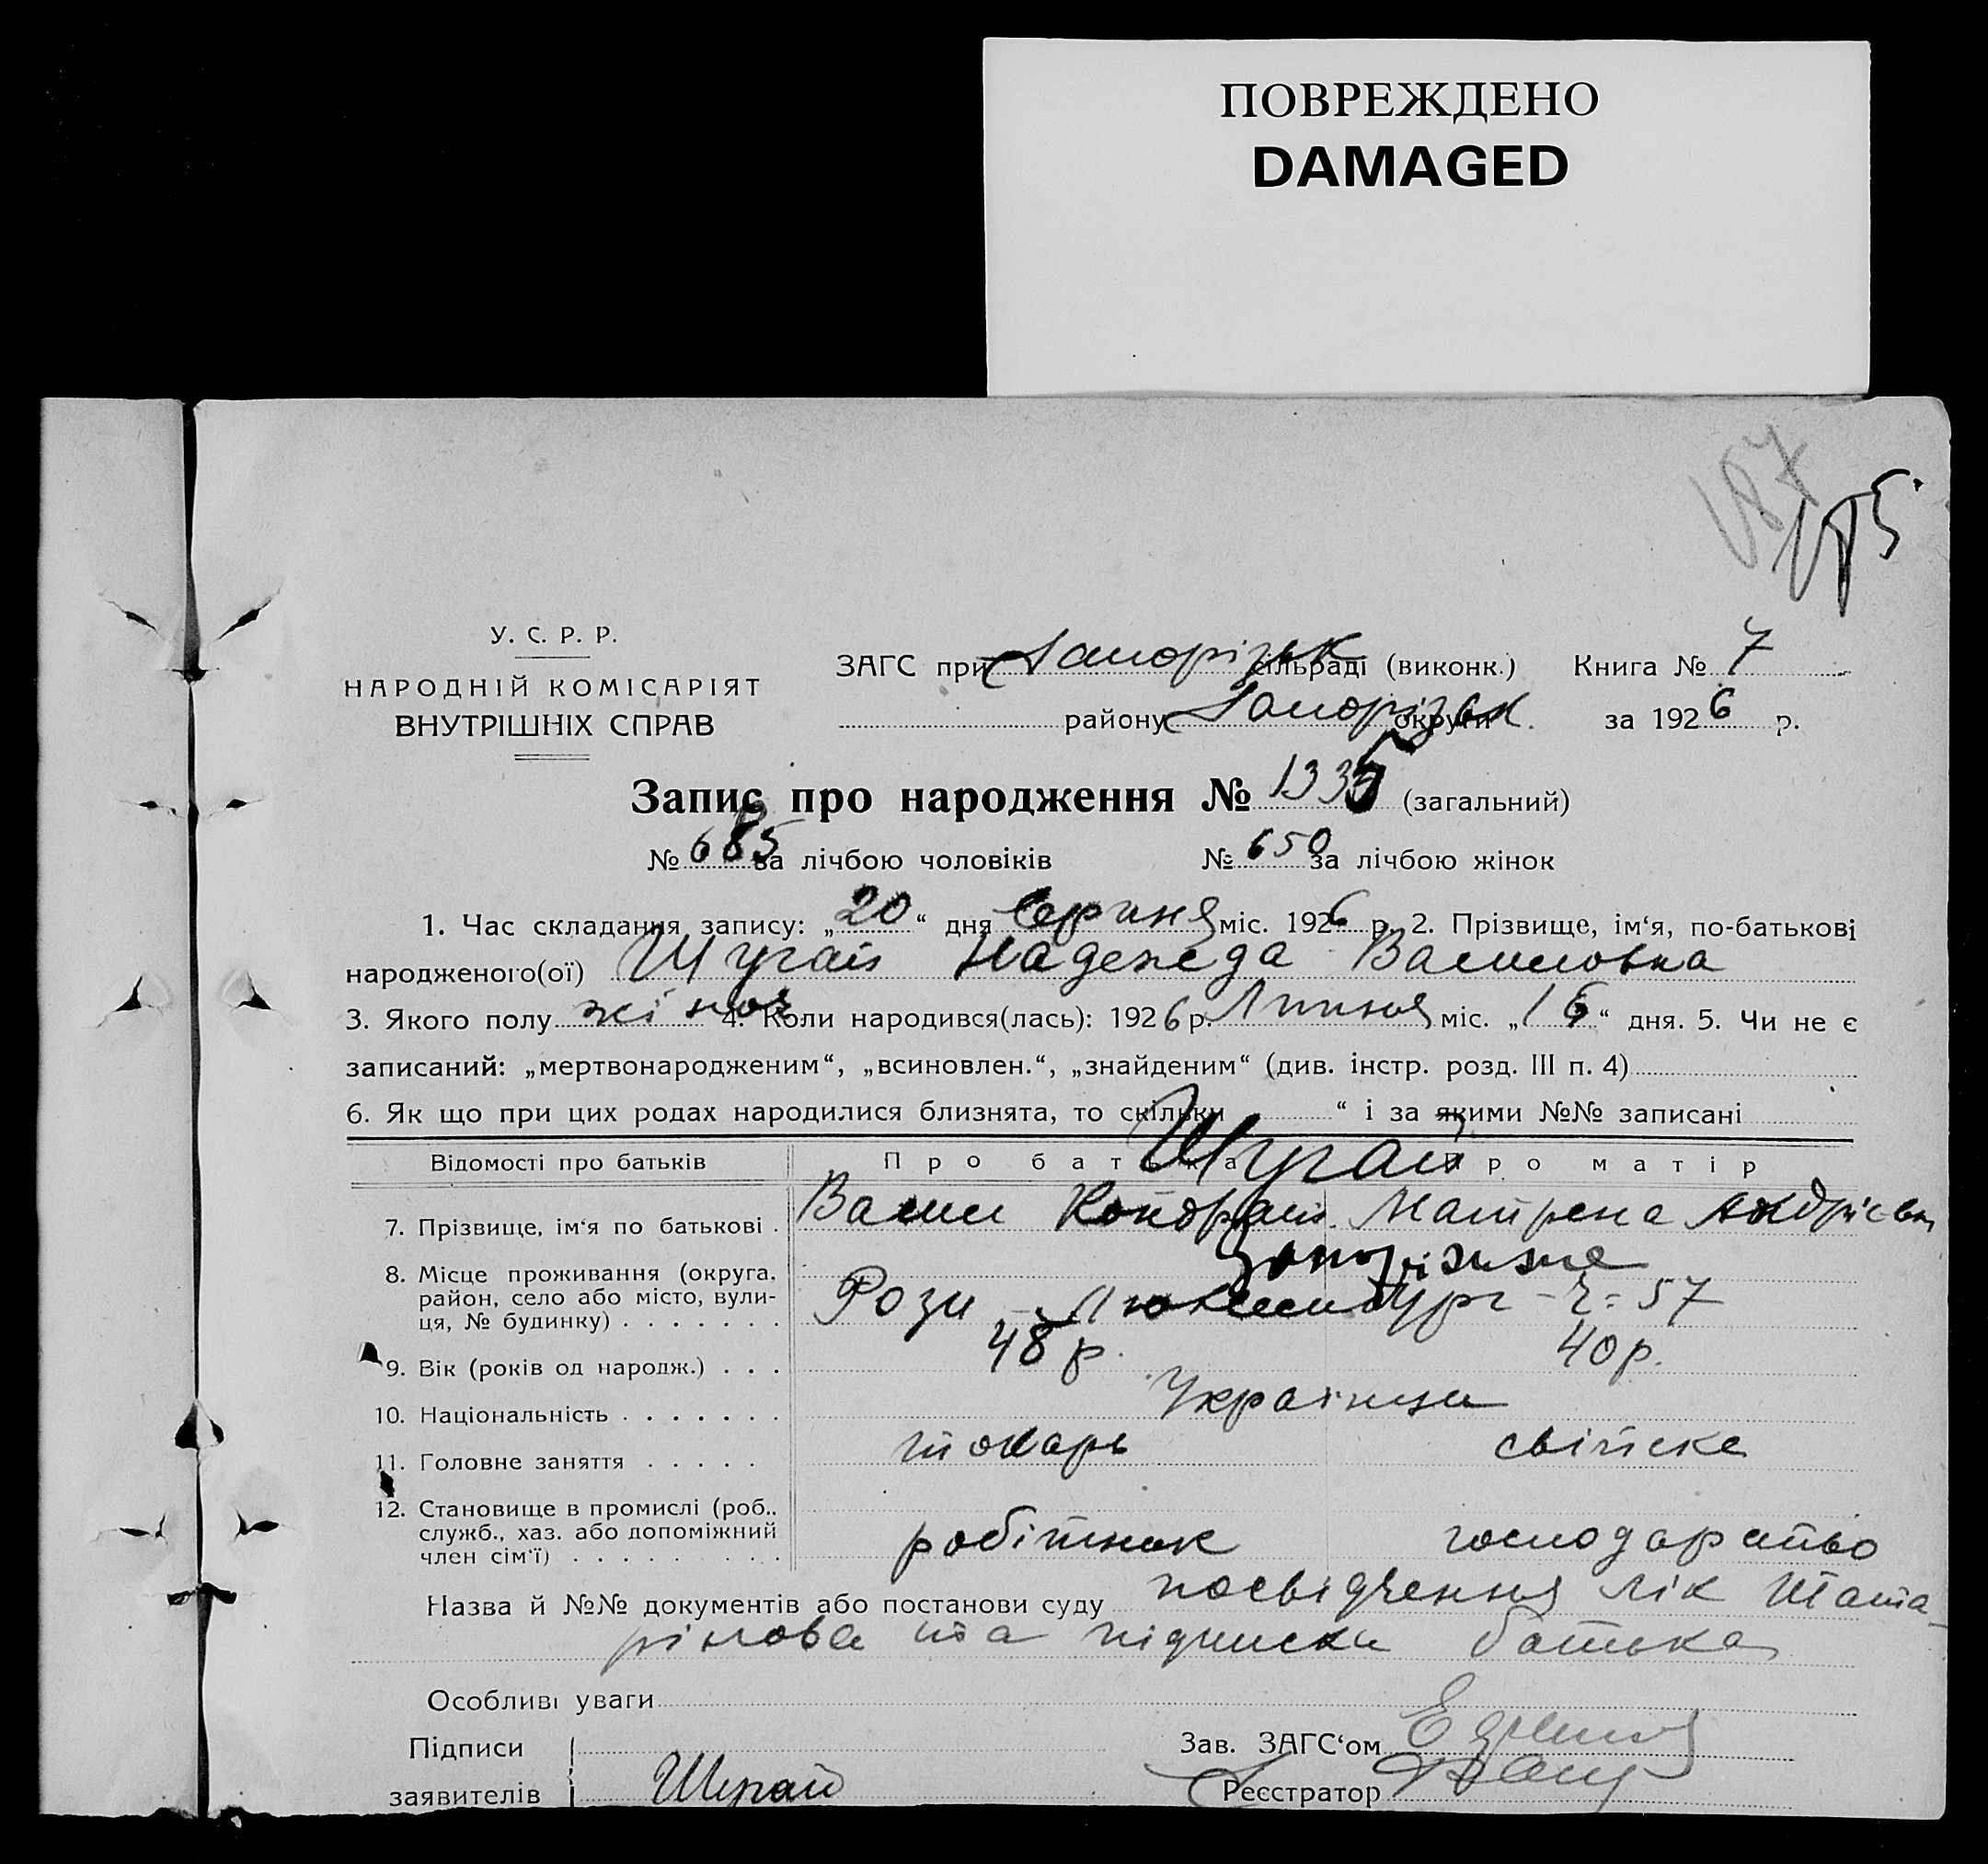 ПОВРЕЖДЕНО
DAMAGED
187
У. С. Р. Р.
НАРОДНІЙ КОМІСАРІЯТ
ВНУТРІШНІХ СПРАВ
ЗАГС при Запорізьк сільраді (виконк.) Книга № 7
району Запорізьк округи за 1926 р.
Запис про народження № 1335 (загальний)
№ 685 за лічбою чоловіків № 650 за лічбою жінок
1. Час складання запису: „20“ дня Серпня міс. 1926 р. 2. Прізвище, ім‘я, по-батькові
народженого(ої) Шугай Надежда Василовна
3. Якого полу жіноч 4. Коли народився(лась): 1926 р. Липня міс. „16“ дня. 5. Чи не є
записаний: „мертвонародженим“, „всиновлен.“, „знайденим“ (див. інстр. розд. III п. 4)
6. Як що при цих родах народилися близнята, то скільки “ і за якими №№ записані
Відомості про батьків Про батька Про матір
Шугай
7. Прізвище, ім‘я по батькові . Васил Кондрат. Матрена Андрієвн
Запоріжже
8. Місце проживання (округа, район, село або місто, вулиця, № будинку) . . . . . . . Рози – Люксембург – ч= 57
9. Вік (років од народж.) . . . 48 р. 40 р.
10. Національність . . . . . . . Українци
11. Головне заняття . . . . . токарь свійске
12. Становище в промислі (роб., служб., хаз. або допоміжний член сім‘ї) . . . . . . . . . робітник господарство
Назва й №№ документів або постанови суду посвідчення лік Шата-
рінова та підписки батька
Особливі уваги
Підписи Зав. ЗАГС‘ом
заявителів Шугай Реєстратор